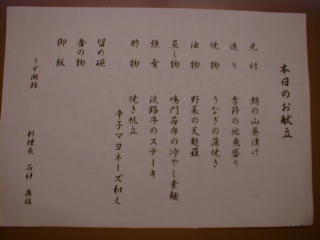 本日のお献立
先付 蛸の山葵漬け
造り 季節の地魚盛り
焼物 うなぎの蒲焼き
油物 野菜の天麩羅
蒸し物 鳴門若布の冷やし素麺
強肴 淡路牛のステーキ
酢物 焼き帆立
辛子マヨネーズ和え
留め椀
香の物
御飯
うず潮館
料理長 石井